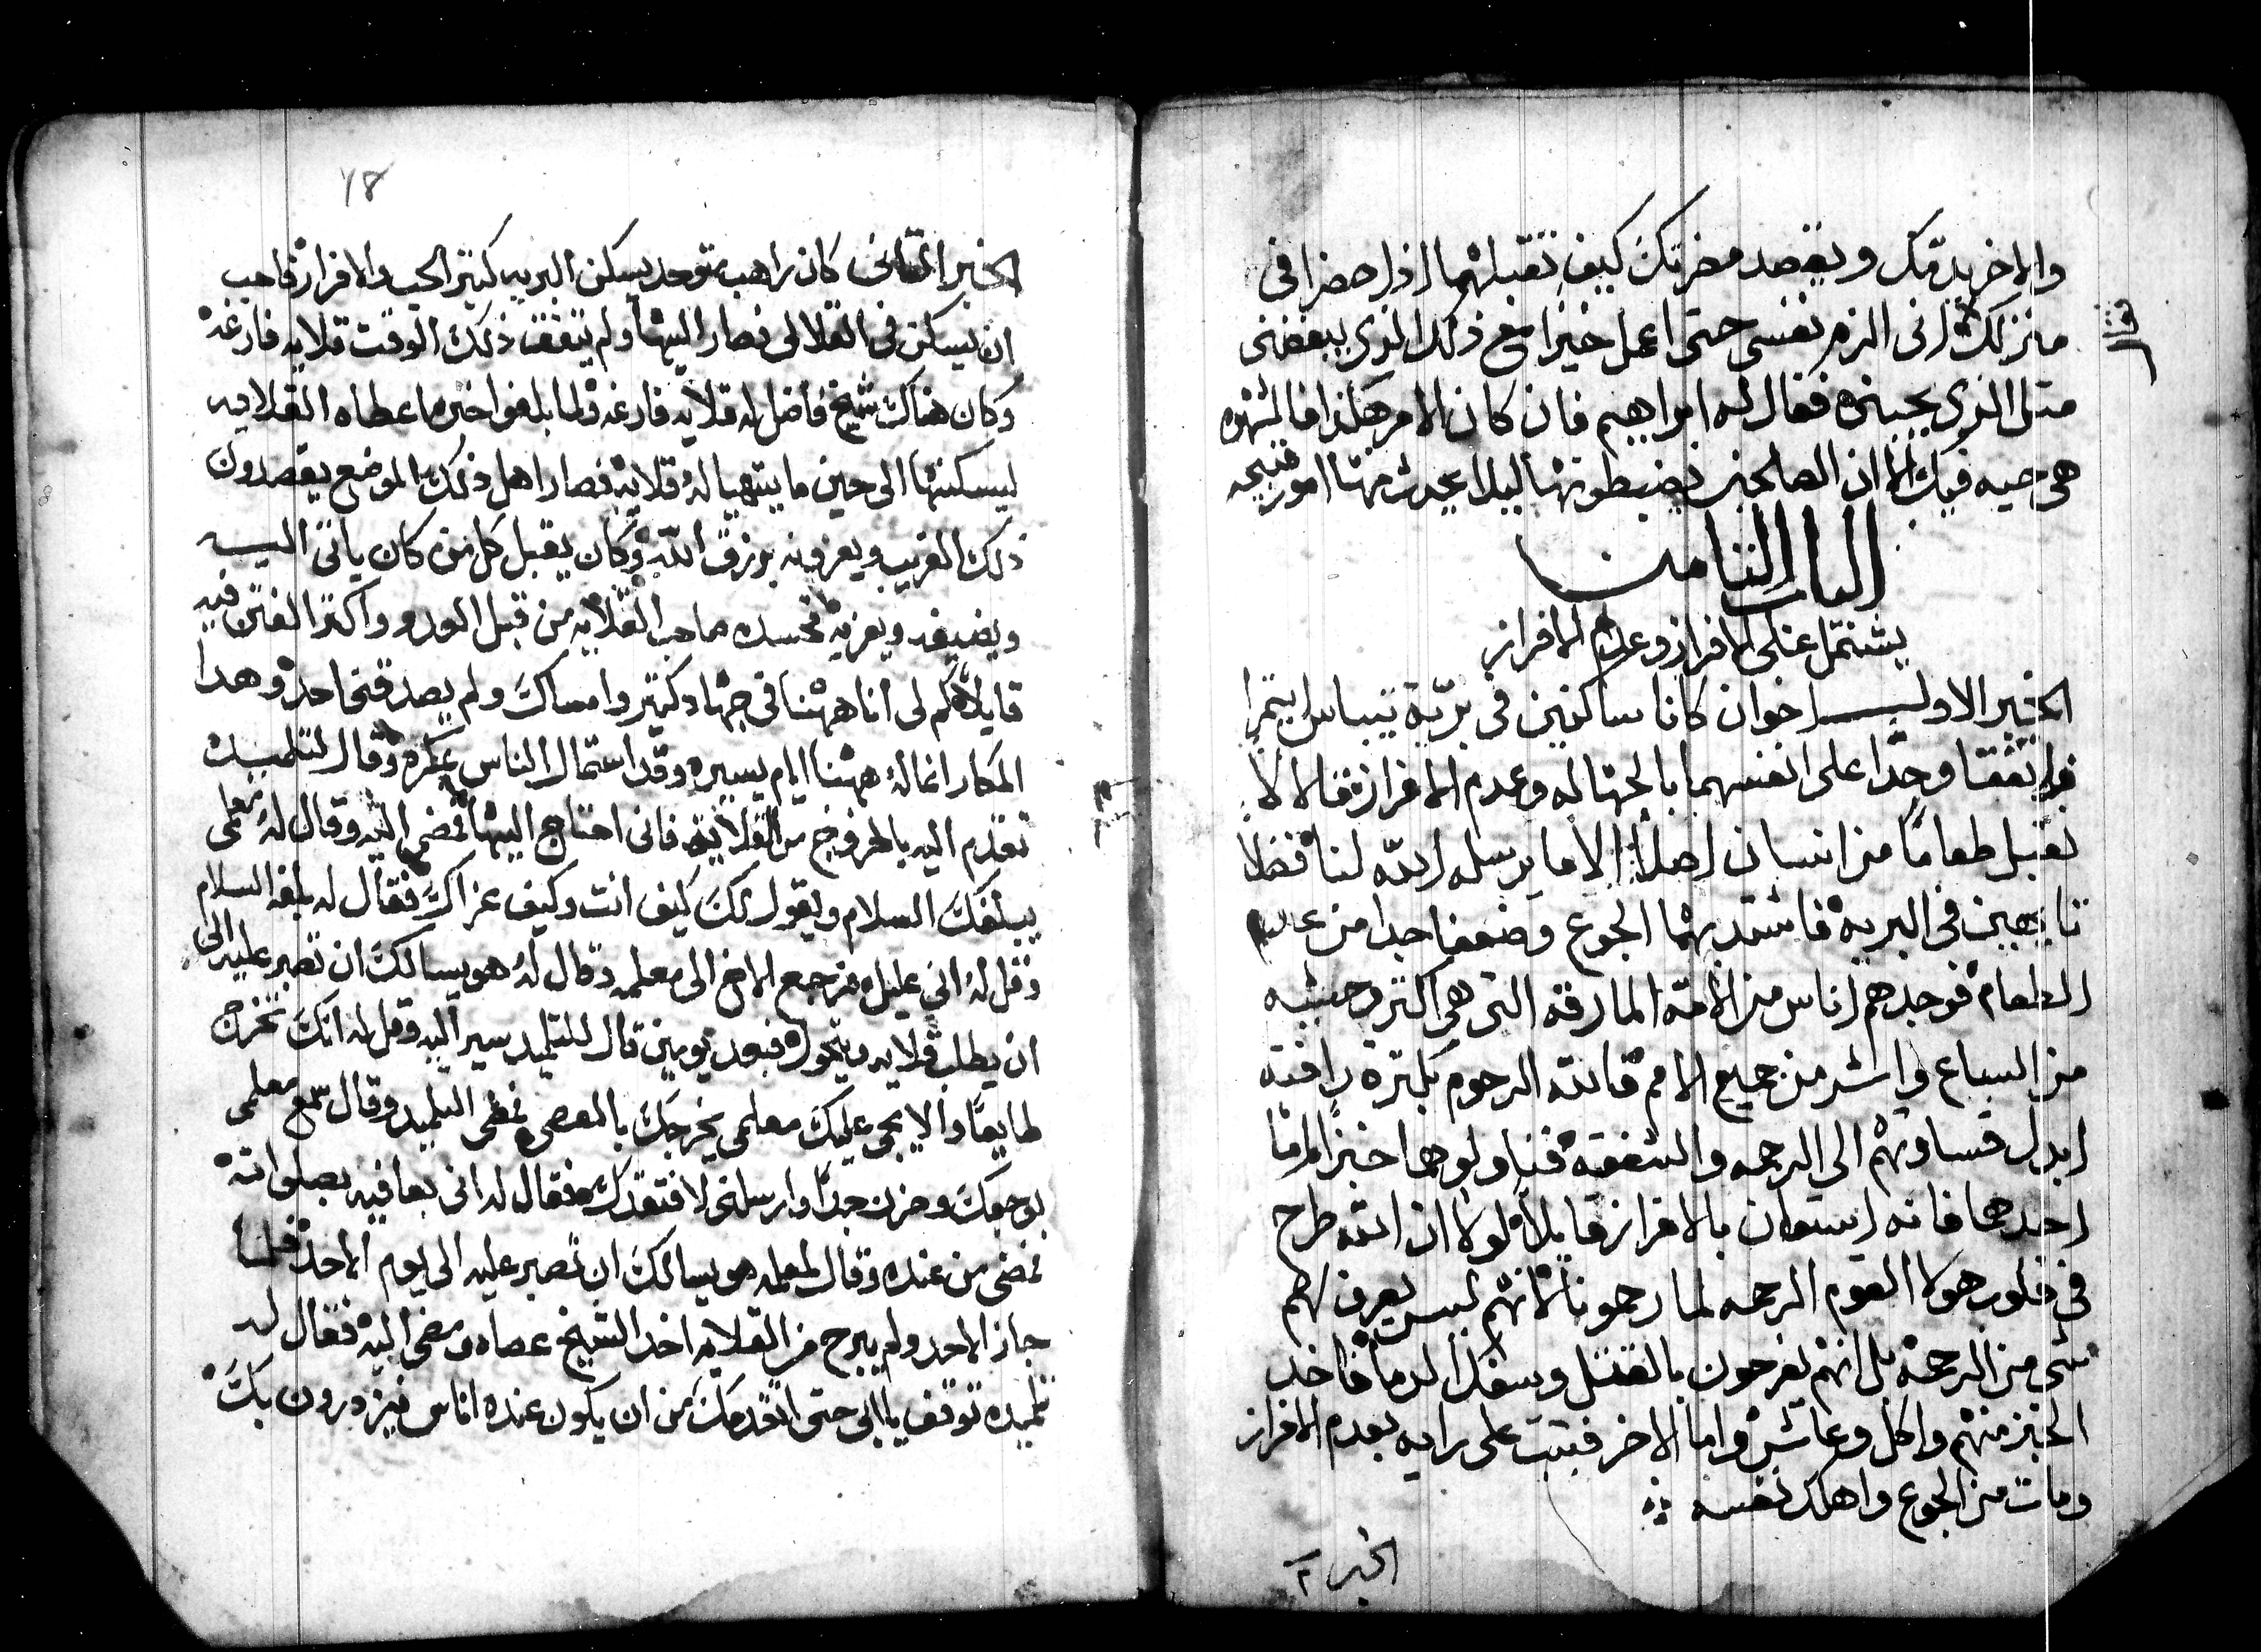 والاخر يذمّك ويقصد مضرتك كيف تقبلهما اذا حضرا في
منزلك اني الزم نفسي حتى اعمل خيرا مع ذلك الذي يبغضني
فقال
مثل الذي يحبني فقال له ابراهيم فان كان الامر هكذا فالشهوه
هي حيه فيك الا ان الصالحين يضبطونها ليلا يحدث منها امور قبيحه
الباب الثامن
يشتمل على الافراز وعدم الافراز
الخبر الاول اخوان كانا ساكنين في بريّة
فاتفقا وجدّا على انفسهما بالجهاله وعدم الافراز فالا لا
نقبل طعامًا من انسان اصلا الا ما يرسله الله لنا فضلا
تايهين في البريه فاشتد بهما الجوع وضعفا جدا من عدم
الطعام فوجدهم اناس من الامّة المارقه التي هي اكثر وحشه
من السباع واشر من جميع الامم فالله الرحوم بكثرة رافته
ابدل قساوتهم الى الرحمه والشفقه فناولوهما خبزا امّا
احدهما فانه استعان بالافراز قايلا لولا ان الله طرح
في قلوب هولا القوم الرحمه لما رحمونا لانهم ليس يعرف لهم
شي من الرحمة بل انهم يفرحون بالقتل وسفك الدما فاخد
الخبز منهم واكل وعاش واما الاخر فثبت على رايه بعدم الافراز
ومات من الجوع واهلك نفسه
الخبر ٢
٧٨
الخبر الثاني كان راهب متوحد يسكن البريه كثير الحب والافراز فاحب
ان يسكن في القلالي فصار اليها ولم يتفق ذلك الوقت قلايه فارغة
وكان هناك شيخ فاضل له قلايه فارغه ولما بلغوا خبره اعطاه القلايه
ليسكنها الى حين ما يتهيا له قلايه فصار اهل ذلك الموضع يقصدون
ذلك الغريب ويعزونه برزق الله وكان يقبل كل من كان ياتي اليه
ويضيفه ويعزيه فحسده صاحب القلايه من قبل العدو واكثر الفتن فيه
قايلا كم لي انا ههنا في جهاد كثير وامساك ولم يصدقني احد وهدا
المكار انما له ههنا ايام يسيره وقد استمال الناس بمكره وقال لتلميده
تقدم اليه بالخروج من القلايه فاني احتاج اليها فمضى اليه وقال له معلمي
يبلغك السلام ويقول لك كيف انت وكيف عزاك فقال له بلغه السلام
وقل له اني عليل فرجع الاخ الى معلمه وقال له هو يسالك ان تصبر عليه الى
ان يطلب قلايه ويتحول فبعد يومين قال للتلميد سير اليه وقل له انك تخرج
طايعًا والا يجي عليك معلمي يخرجك بالعصى فمضى التلميد وقال سمع معلمي
بوجعك وحزن جدًا وارسلني لافتقدك فقال له اني بعافيه بصلواته
فمضى من عنده وقال لمعلمه هو يسالك ان تصبر عليه الى يوم الاحد فلما
جاز الاحد ولم يبرح من القلايه اخد الشيخ عصاه ومضى اليه فقال له
تلميده توقف يا ابي حتى اتقدمك من ان يكون عنده اناس فيزدرون بك